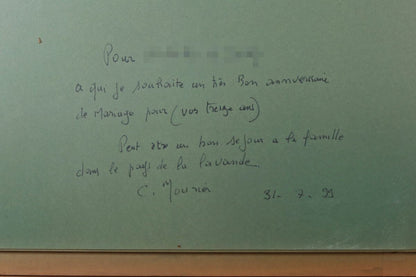 Pour
a qui je souhaite un très Bon anniversaire
de Mariage pour (vos treize ans)
Peut etre un bon sejour a la famille
dans le pays de la lavande.
C. Mounier 31-7-99